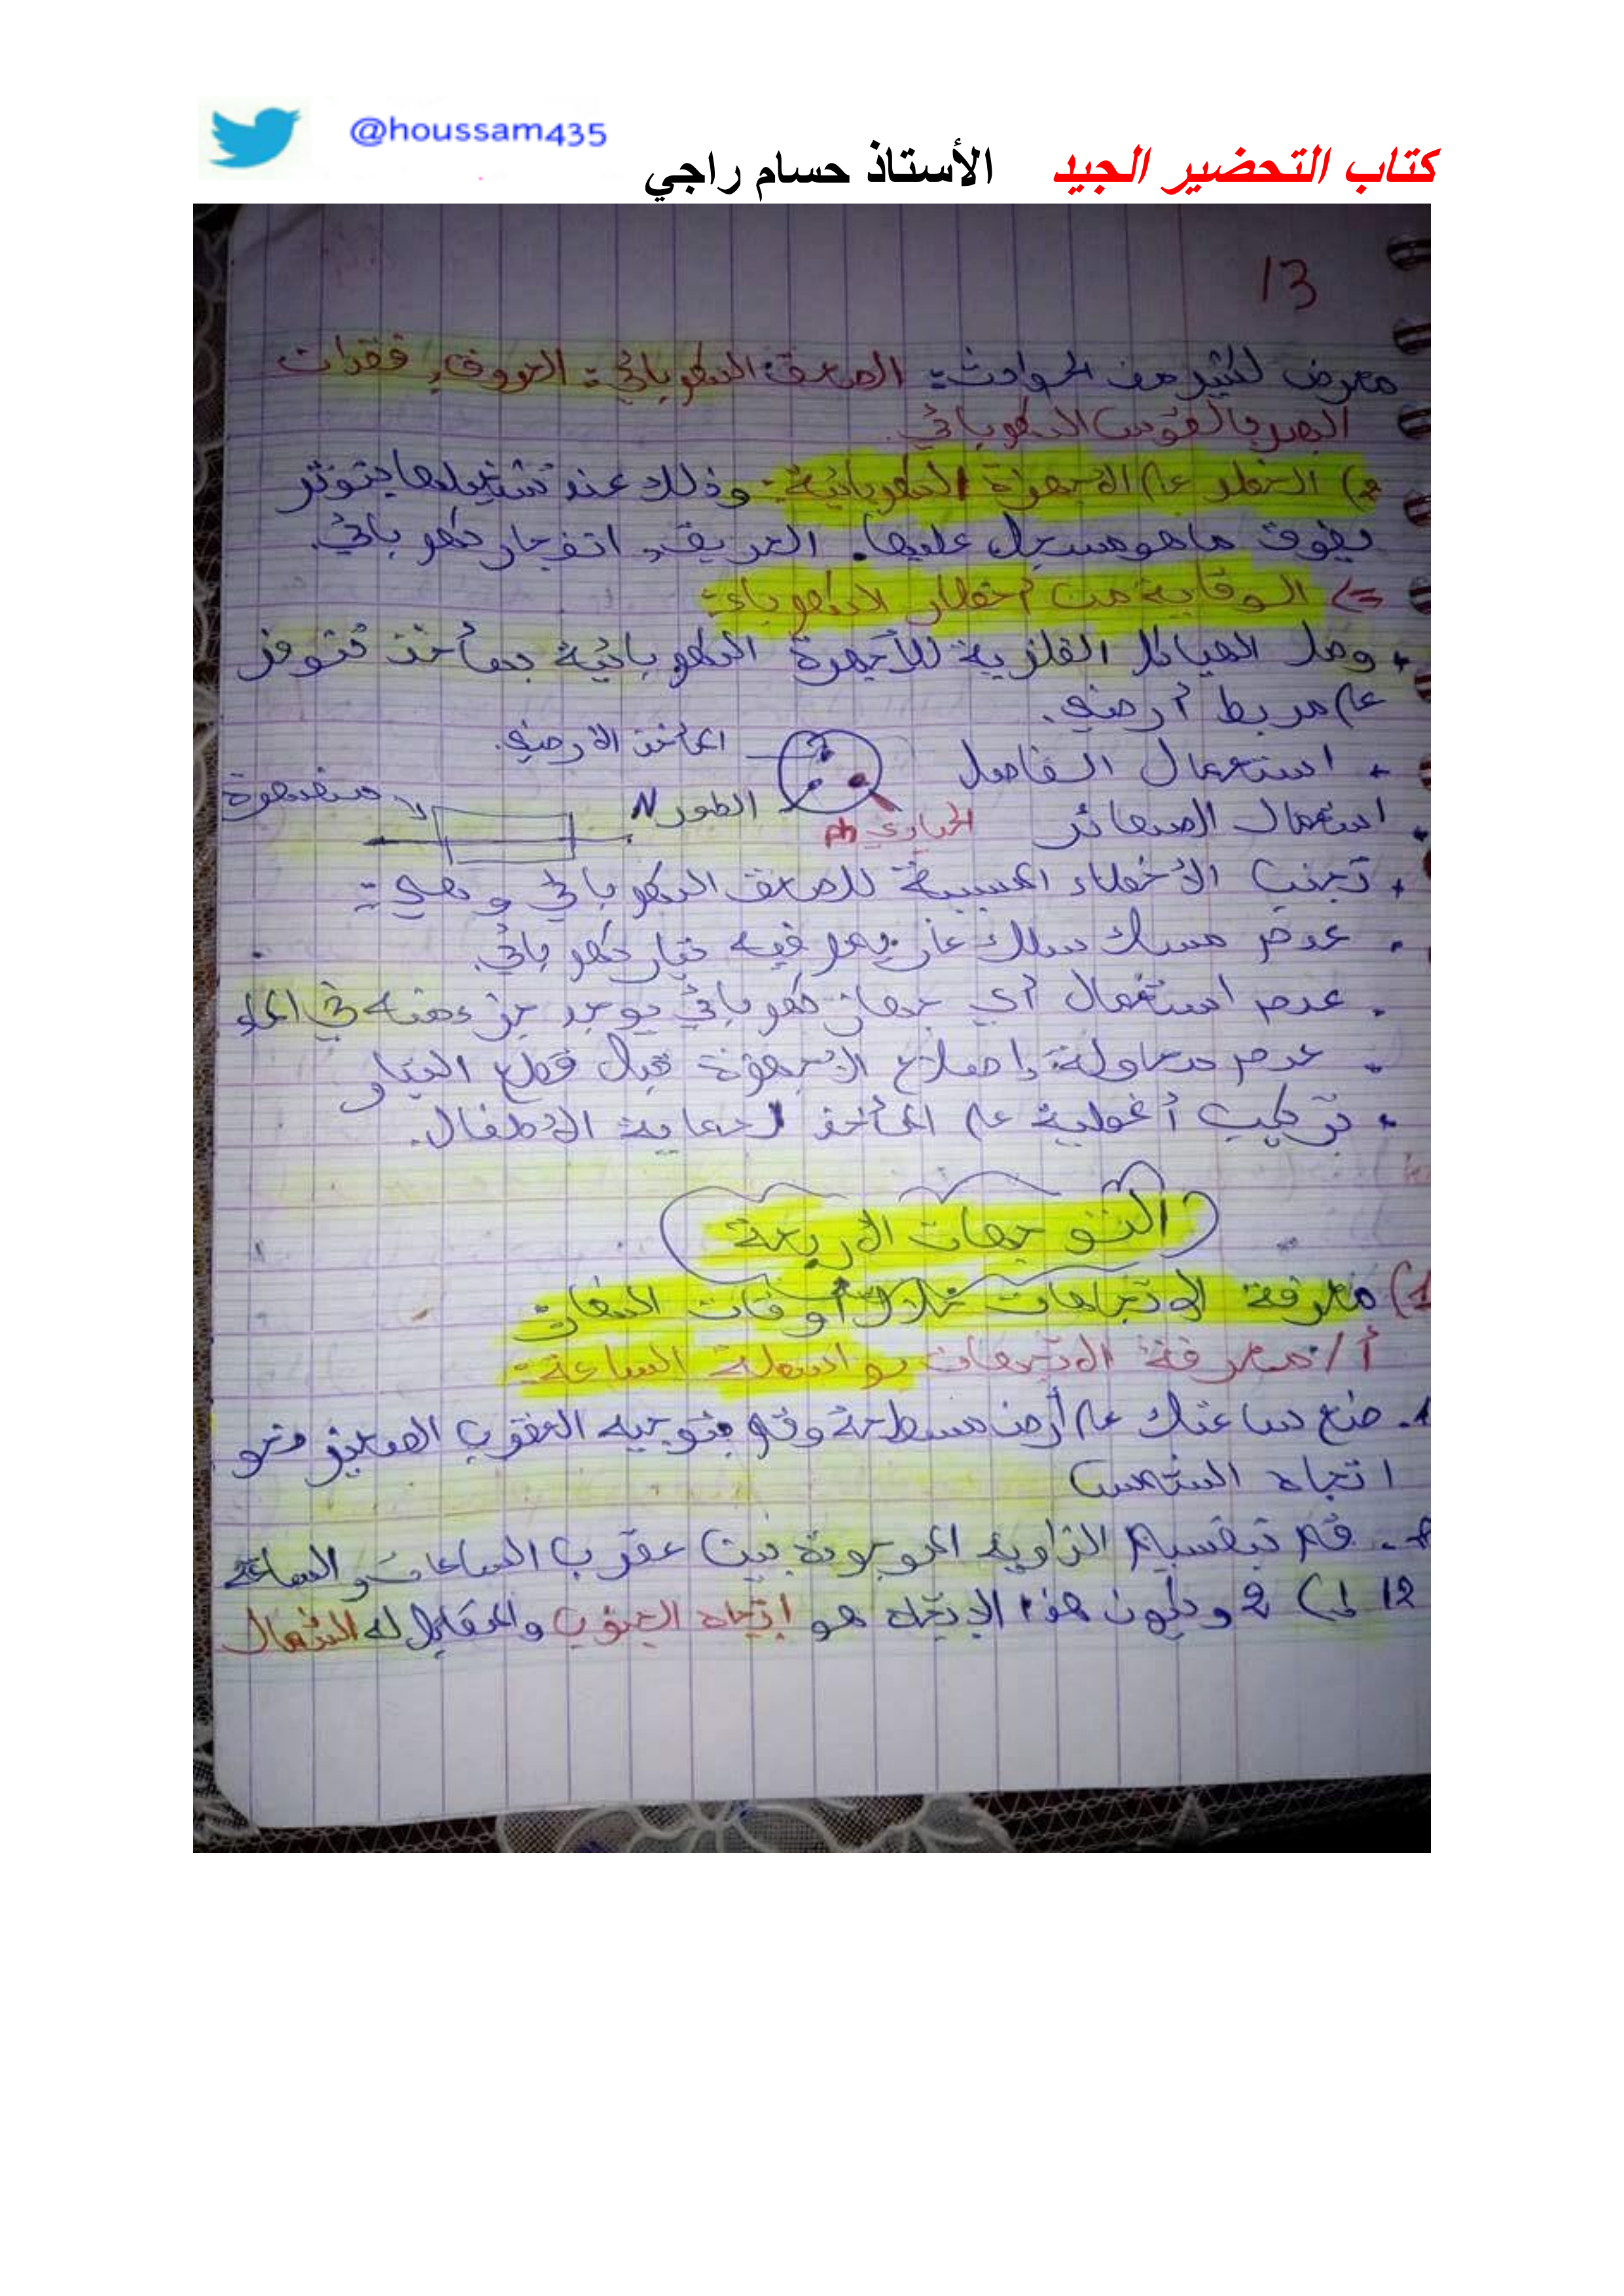 @houssam435
كتاب التحضير الجيد الأستاذ حسام راجي
13
معرض لكثير من الحوادث: الصعق الكهربائي: الحروق، فقدان
البصر بالقوس الكهربائي.
2) الخطر على الأجهزة الكهربائية: وذلك عند تشغيلها بتوتر
يفوق ما هو مسجل عليها. الحريق، انفجار كهربائي.
=> الوقاية من أخطار الكهرباء:
• وصل الهياكل الفلزية للأجهزة الكهربائية بمأخذ تتوفر
على مربط أرضي.
المأخذ الأرضي.
• استعمال الفاصل
الطور N
الحيادي ph
منصهرة
• استعمال الصهائر
• تجنب الأخطاء المسببة للصعق الكهربائي وهي:
• عدم مسك سلك عار يمر فيه تيار كهربائي.
• عدم استعمال أي جهاز كهربائي يوجد جزء منه في الماء
• عدم محاولة إصلاح الأجهزة قبل قطع التيار
• تركيب أغطية على المأخذ لحماية الأطفال.
التوجهات الأربعة
1) معرفة الاتجاهات خلال أوقات النهار
أ/ معرفة الاتجهات بواسطة الساعة:
1. ضع ساعتك على أرض مسطحة وقم بتوجيه العقرب الصغير نحو
اتجاه الشمس
2. قم بتقسيم الزاوية الموجودة بين عقرب الساعات والساعة
12 إلى 2 ويكون هذا الاتجاه هو اتجاه الجنوب والمقابل له الشمال